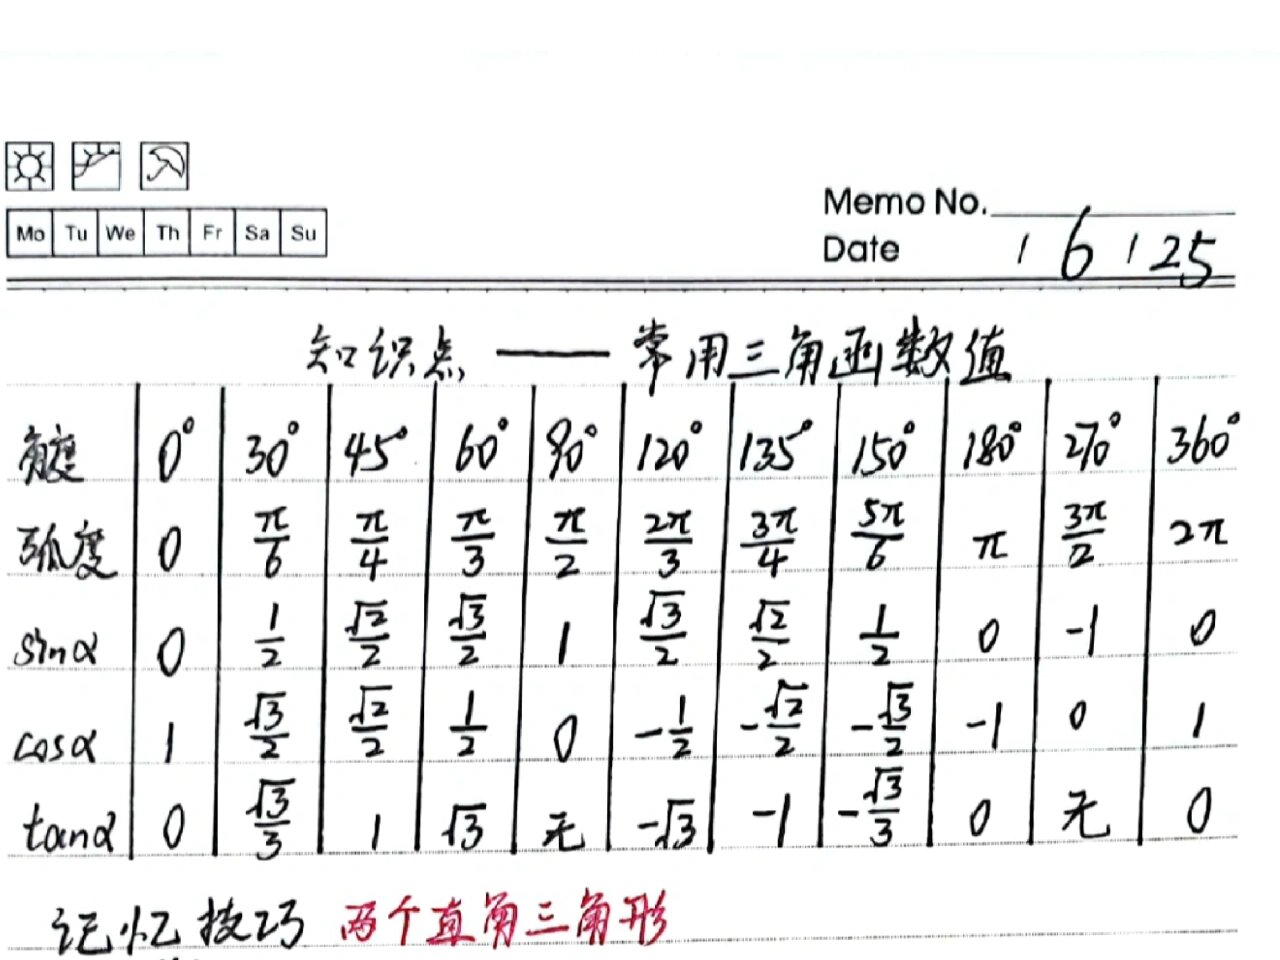 Mo Tu We Th Fr Sa Su
Memo No.
Date / 6 / 25
知识点 —— 常用三角函数值
角度 0° 30° 45° 60° 90° 120° 135° 150° 180° 270° 360°
弧度 0 π/6 π/4 π/3 π/2 2π/3 3π/4 5π/6 π 3π/2 2π
sinα 0 1/2 √2/2 √3/2 1 √3/2 √2/2 1/2 0 -1 0
cosα 1 √3/2 √2/2 1/2 0 -1/2 -√2/2 -√3/2 -1 0 1
tanα 0 √3/3 1 √3 无 -√3 -1 -√3/3 0 无 0
记忆技巧 两个直角三角形